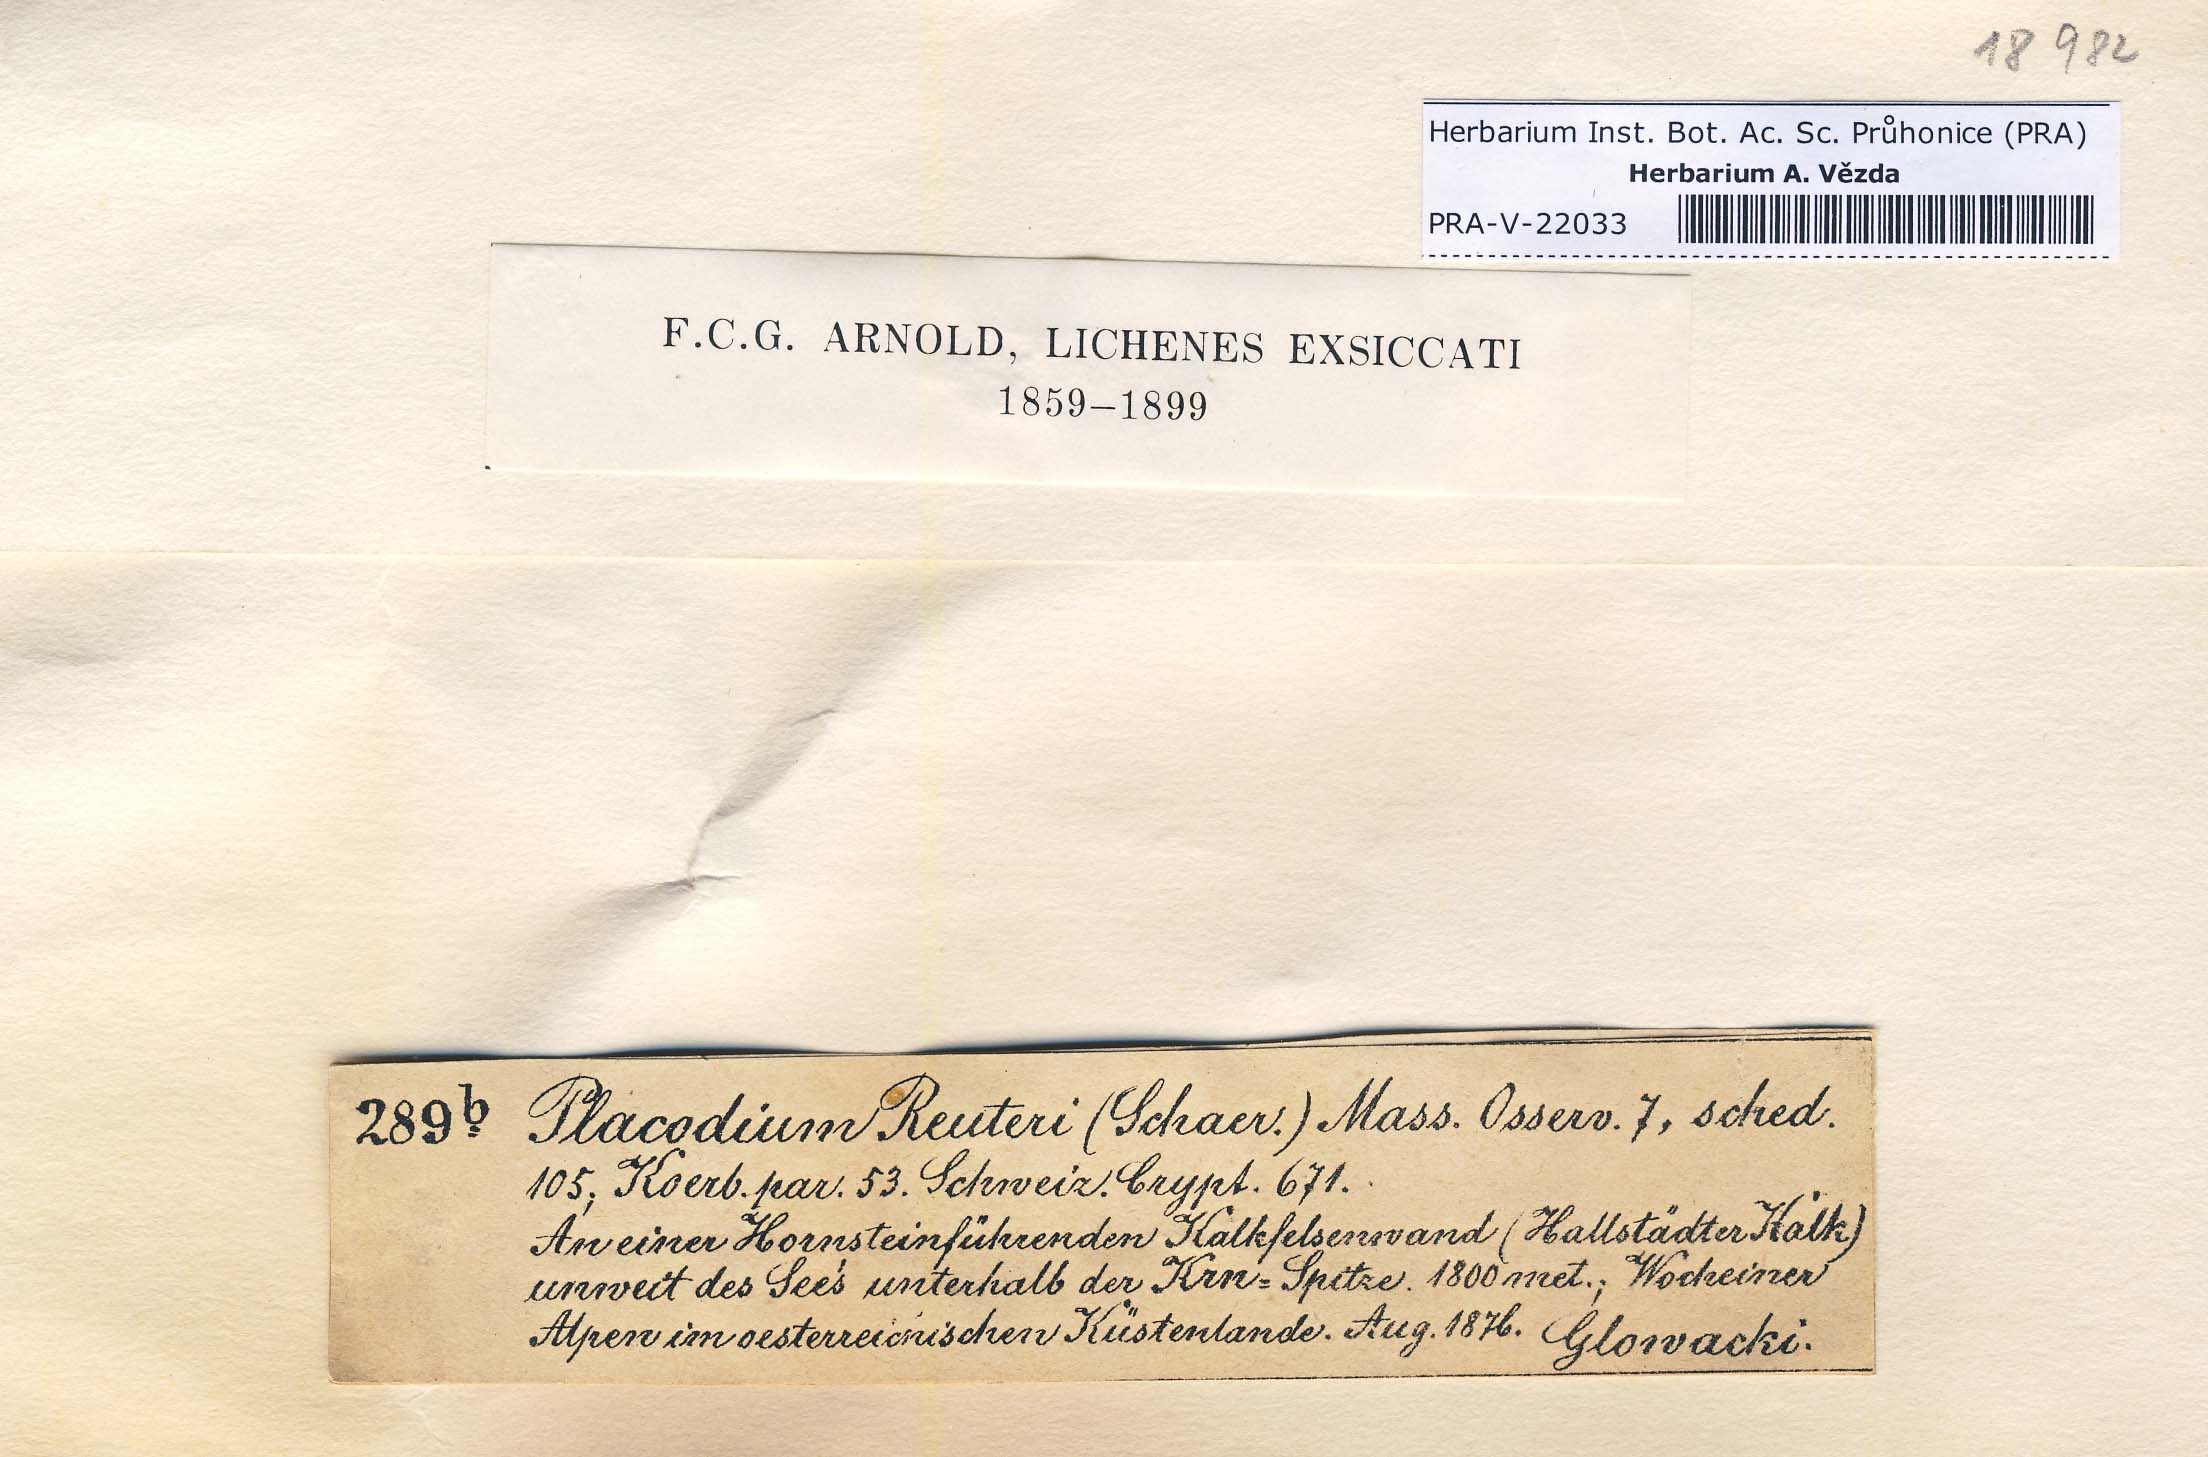 18 982
Herbarium Inst. Bot. Ac. Sc. Průhonice (PRA)
Herbarium A. Vězda
PRA-V-22033
F.C.G. ARNOLD, LICHENES EXSICCATI
1859–1899
289b. Placodium Reuteri (Schaer.) Mass. Osserv. 7, sched.
105; Koerb. par. 53. Schweiz. Crypt. 671.
An einer Hornsteinführenden Kalkfelsenwand (Hallstädter Kalk)
unweit des See's unterhalb der Krn=Spitze. 1800 met.; Wocheiner
Alpen im oesterreichischen Küstenlande. Aug. 1876. Glowacki.